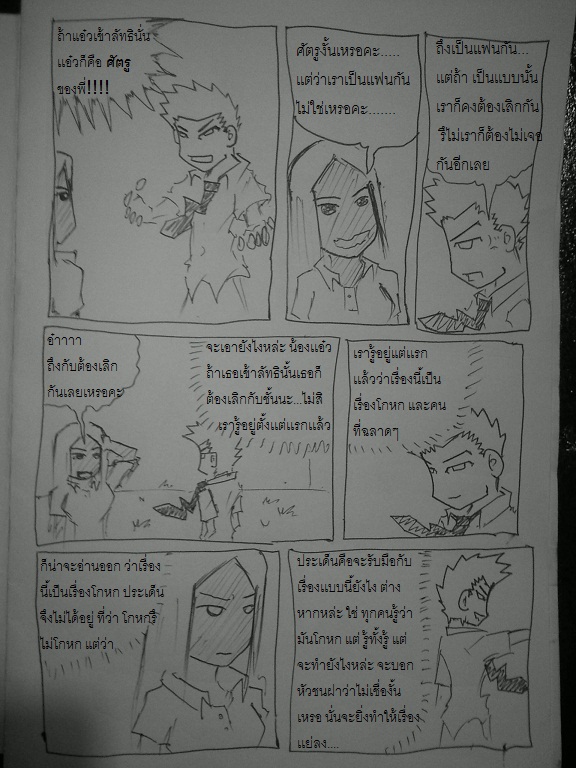 ถ้าแอ๋วเข้าลัทธินั่น
แอ๋วก็คือ ศัตรู
ของพี่!!!!
ศัตรูงั้นเหรอคะ.....
แต่ว่าเราเป็นแฟนกัน
ไม่ใช่เหรอคะ.......
ถึงเป็นแฟนกัน...
แต่ถ้า เป็นแบบนั้น
เราก็คงต้องเลิกกัน
รึไม่เราก็ต้องไม่เจอ
กันอีกเลย
อ๋าาาา
ถึงกับต้องเลิก
กันเลยเหรอคะ
จะเอายังไงหล่ะ น้องแอ๋ว
ถ้าเธอเข้าลัทธินั้นเธอก็
ต้องเลิกกับชั้นนะ...ไม่สิ
เรารู้อยู่ตั้งแต่แรกแล้ว
เรารู้อยู่แต่แรก
แล้วว่าเรื่องนี้เป็น
เรื่องโกหก และคน
ที่ฉลาดๆ
ก็น่าจะอ่านออก ว่าเรื่อง
นี้เป็นเรื่องโกหก ประเด็น
จึงไม่ได้อยู่ ที่ว่า โกหกรึ
ไม่โกหก แต่ว่า
ประเด็นคือจะรับมือกับ
เรื่องแบบนี้ยังไง ต่าง
หากหล่ะ ใช่ ทุกคนรู้ว่า
มันโกหก แต่ รู้ทั้งรู้ แต่
จะทำยังไงหล่ะ จะบอก
หัวชนฝาว่าไม่เชื่องั้น
เหรอ นั่นจะยิ่งทำให้เรื่อง
แย่ลง....